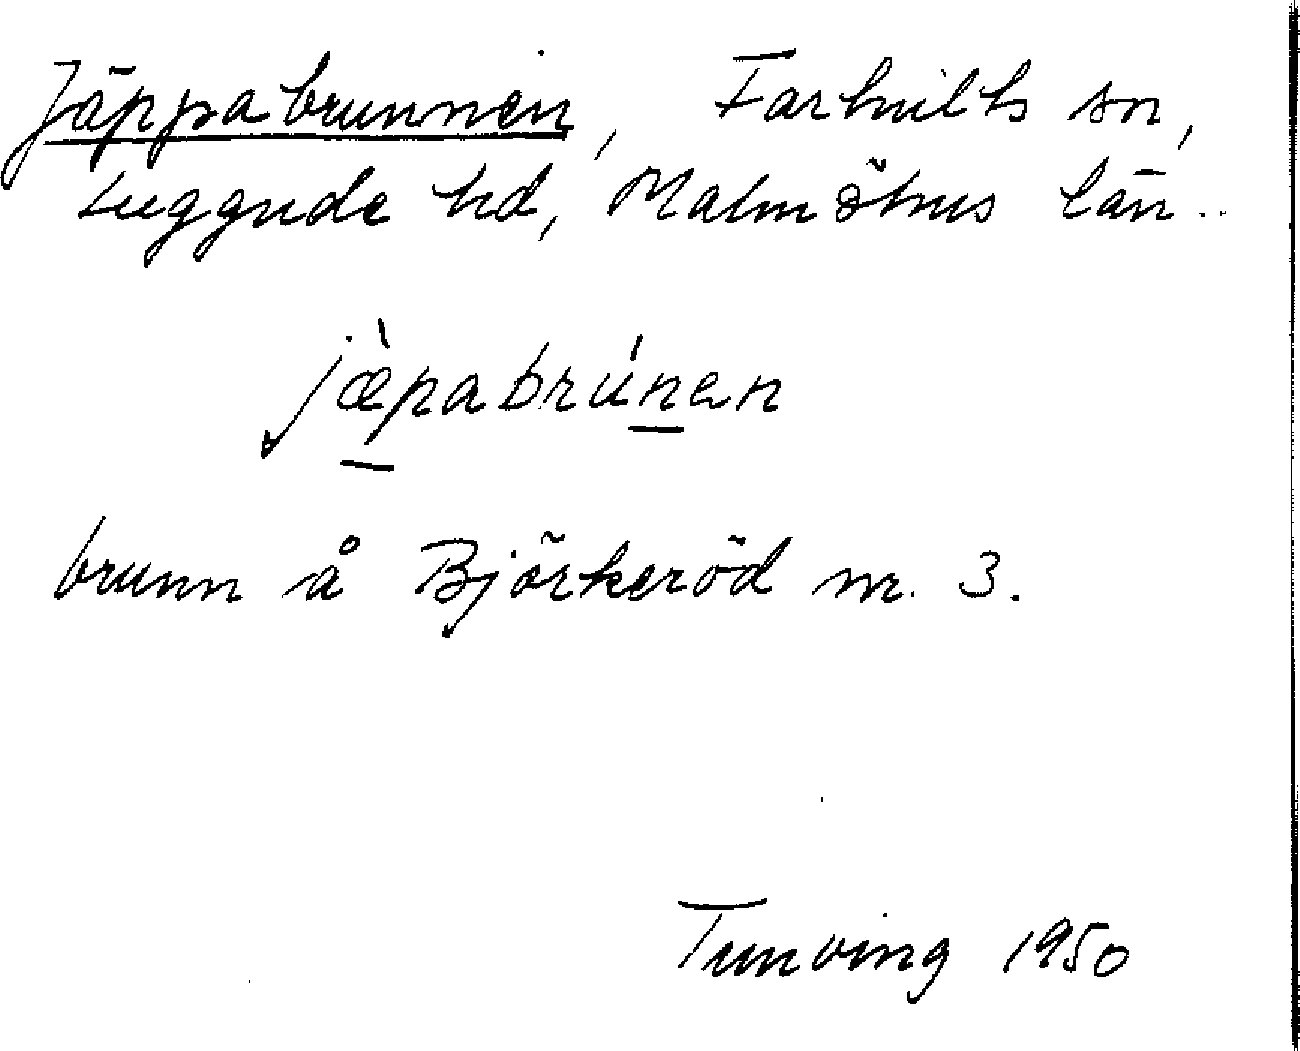 Jäppabrunnen, Farhults sn,
Luggude hd, Malmöhus län.
jæ̀pabrúnen
brunn å Björkeröd nr. 3.
Tunving 1950